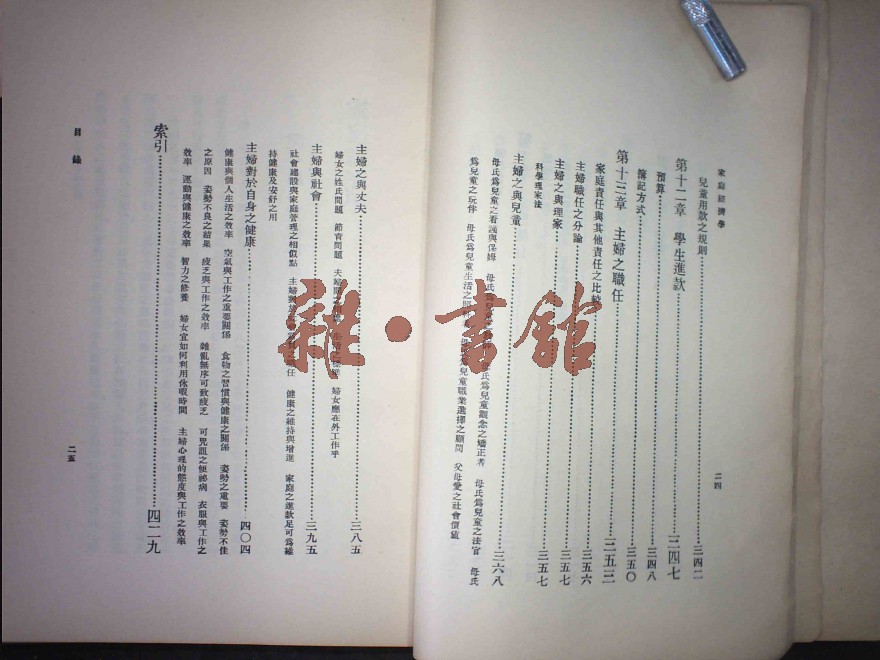 家庭經濟學
二四
兒童用款之規則 三四二
第十二章 學生進款 三四七
預算 三四八
簿記方式 三五〇
第十三章 主婦之職任 三五三
家庭責任與其他責任之比較
主婦職任之分論 三五六
主婦之與理家 三五七
科學理家法 三五七
主婦之與兒童 三六八
母氏爲兒童之看護與保姆 母氏爲兒童 母氏爲兒童觀念之矯正者 母氏爲兒童之法官 母氏
爲兒童之玩伴 母氏爲兒童生活之 母氏爲兒童職業選擇之顧問 父母愛之社會價值
主婦之與丈夫 三八五
婦女之姓氏問題 節育問題 婦女應在外工作乎
主婦與社會 三九五
社會建設與家庭管理之相似點 主婦 健康之維持與增進 家庭之進款足可爲維
持健康及安舒之用
主婦對於自身之健康 四〇四
健康與個人生活之效率 空氣與工作之重要關係 食物之習慣與健康之關係 姿勢之重要 姿勢不佳
之原因 姿勢不良之結果 疲乏與工作之效率 雜亂無序可致疲乏 可咒詛之便祕病 衣服與工作之
效率 運動與健康之效率 智力之修養 婦女宜如何利用休暇時間 主婦心理的態度與工作之效率
索引 四二九
目錄
二五
雜·書館